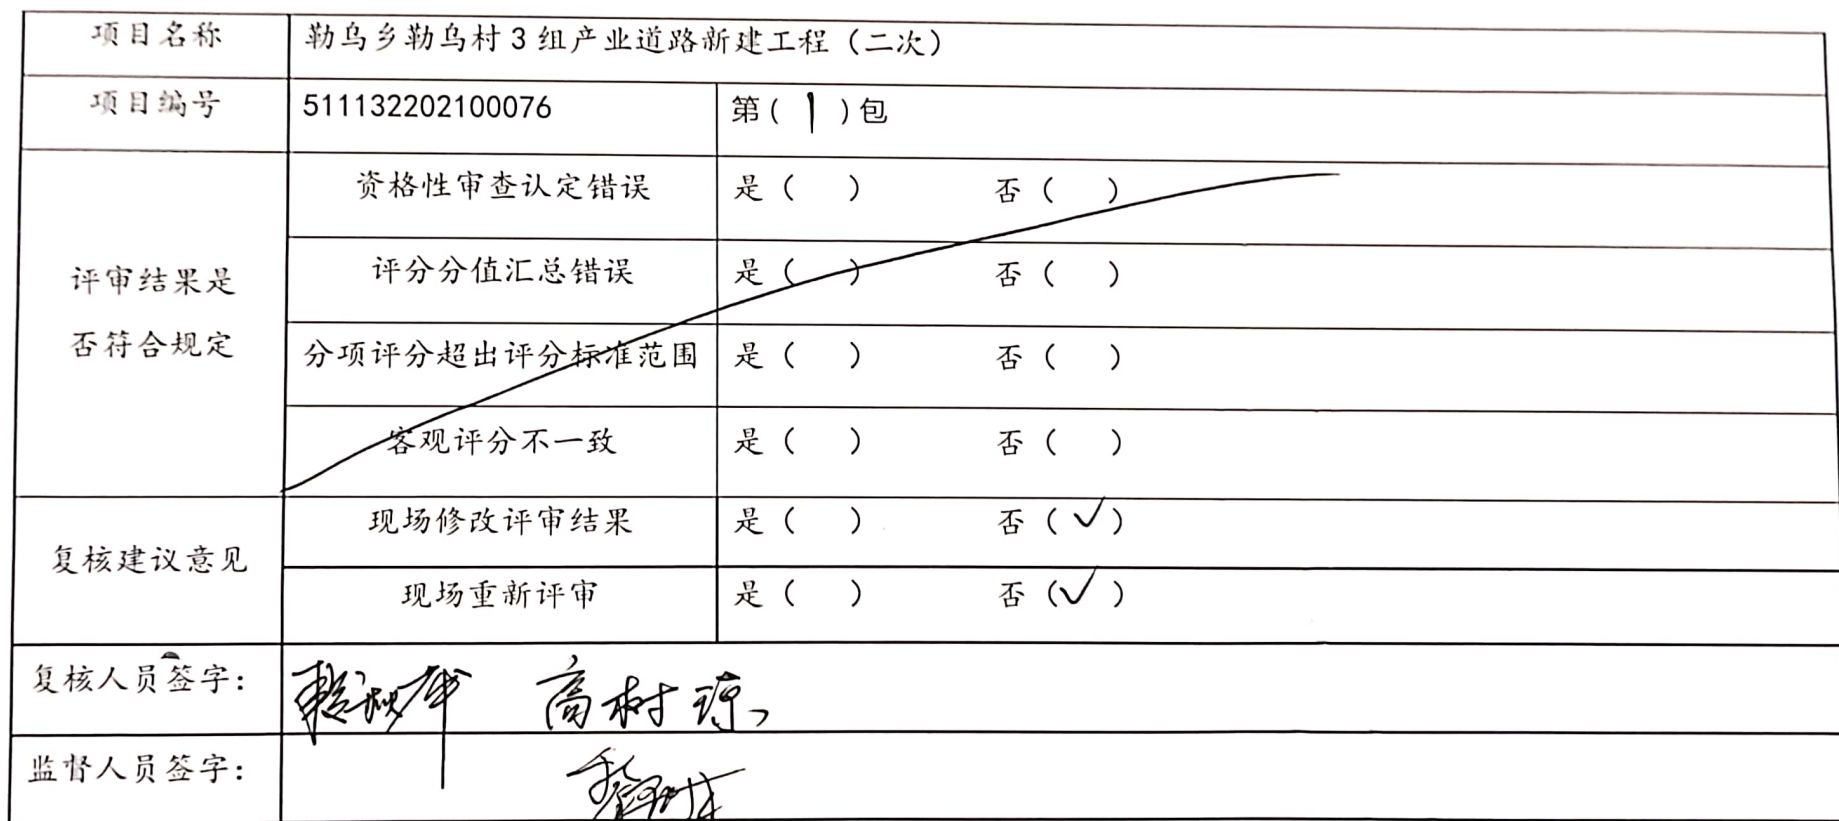 项目名称 勒乌乡勒乌村3组产业道路新建工程（二次）
项目编号 511132202100076 第( 1 )包
资格性审查认定错误 是（ ） 否（ ）
评审结果是
否符合规定
评分分值汇总错误 是（ ） 否（ ）
分项评分超出评分标准范围 是（ ） 否（ ）
客观评分不一致 是（ ） 否（ ）
复核建议意见
现场修改评审结果 是（ ） 否（✓）
现场重新评审 是（ ） 否（✓）
复核人员签字： 高树琼
监督人员签字：